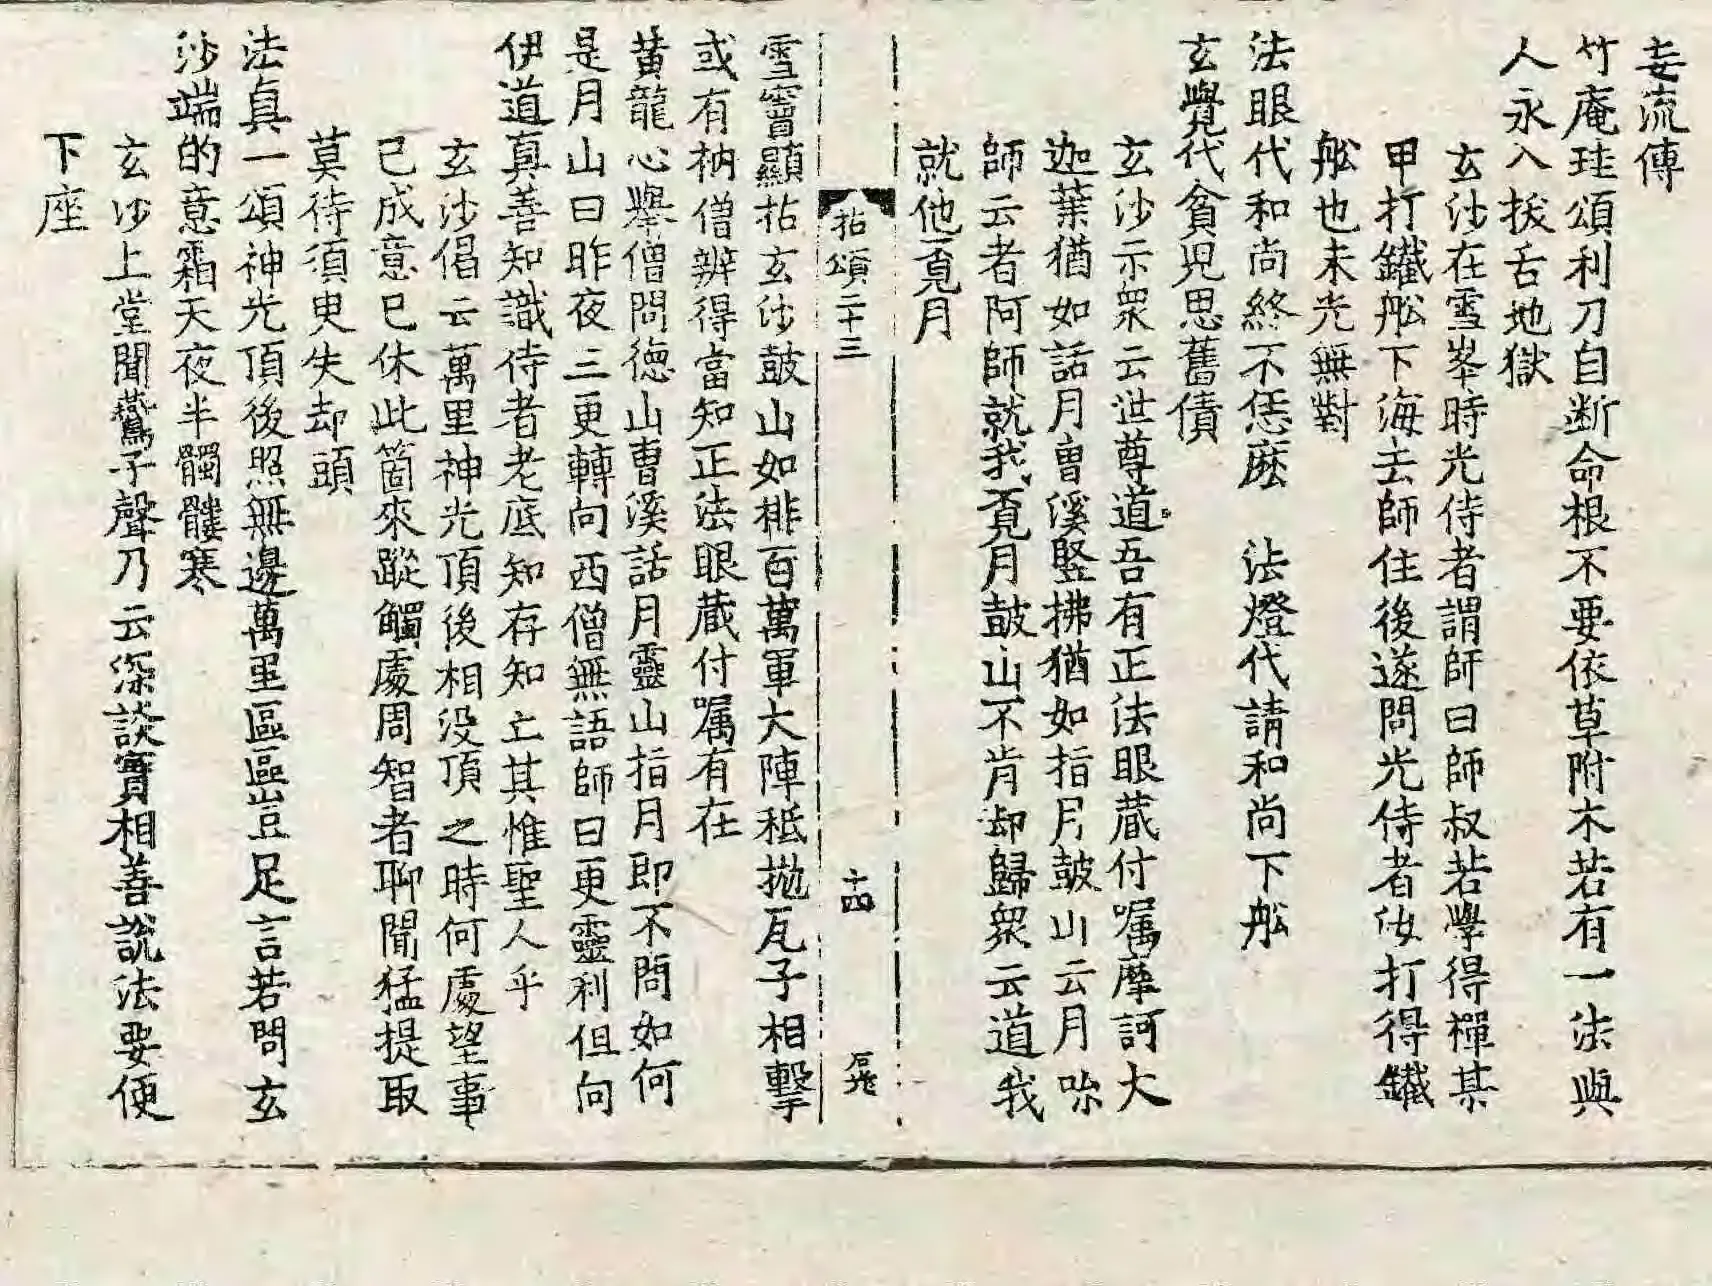 妄流傳
竹庵珪頌利刀自断命根不要依草附木若有一法與
人永入拔舌地獄
玄沙在雪峯時光侍者謂師曰師叔若學得禪某
甲打鐵舩下海去師住後遂問光侍者你打得鐵
舩也未光無對
法眼代和尚終不恁麽　法燈代請和尚下舩
玄覺代貧児思舊債
玄沙示衆云世尊道吾有正法眼蔵付嘱摩訶大
迦葉猶如話月曺溪竪拂猶如指月鼓山云月𠰒
師云者阿師就我覔月鼓山不肯却歸衆云道我
就他覔月
拈頌二十三
十四
雪竇顯拈玄沙鼓山如排百萬軍大陣秪拋瓦子相擊
或有衲僧辨得當知正法眼蔵付嘱有在
黄龍心舉僧問德山曺溪話月靈山指月即不問如何
是月山曰昨夜三更轉向西僧無語師曰更靈利但向
伊道真善知識侍者老底知存知亡其惟聖人乎
玄沙倡云萬里神光頂後相没頂之時何處望事
已成意已休此箇來蹤觸處周智者聊聞猛提取
莫待須臾失却頭
法真一頌神光頂後照無邊萬里區區豈足言若問玄
沙端的意霜天夜半髑髏寒
玄沙上堂聞鷰子聲乃云深談實相善說法要便
下座